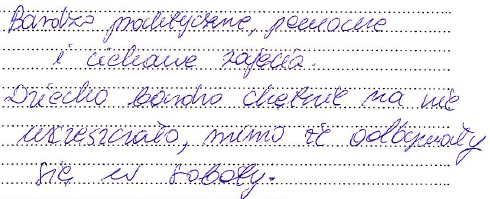 Bardzo praktyczne, pomocne
i ciekawe zajęcia.
Dziecko bardzo chętnie na nie
uczęszczało, mimo że odbywały
się w soboty.